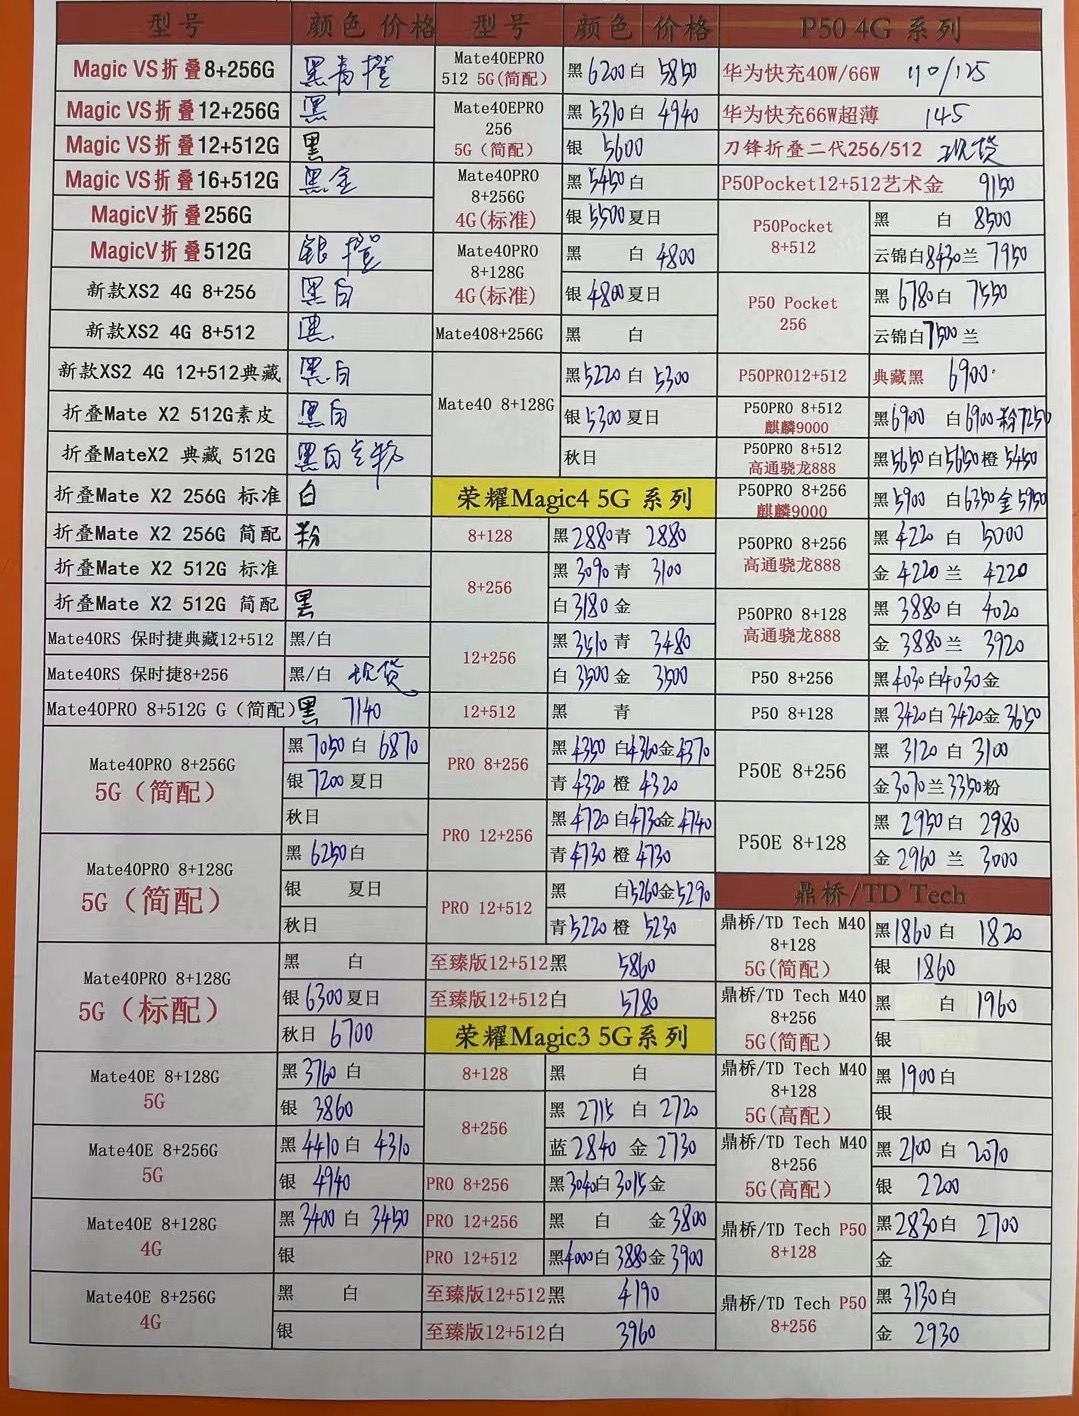 型号 颜色 价格
Magic VS折叠8+256G 黑青橙
Magic VS折叠12+256G 黑
Magic VS折叠12+512G 黑
Magic VS折叠16+512G 黑金
MagicV折叠256G
MagicV折叠512G 银 橙
新款XS2 4G 8+256 黑白
新款XS2 4G 8+512 黑
新款XS2 4G 12+512典藏 黑白
折叠Mate X2 512G素皮 黑白
折叠MateX2 典藏 512G 黑白金粉
折叠Mate X2 256G 标准 白
折叠Mate X2 256G 简配 粉
折叠Mate X2 512G 标准
折叠Mate X2 512G 简配 黑
Mate40RS 保时捷典藏12+512 黑/白
Mate40RS 保时捷8+256 黑/白 现货
Mate40PRO 8+512G G（简配) 黑 7140
Mate40PRO 8+256G
5G（简配）
黑 7050 白 6870
银 7200 夏日
秋日
Mate40PRO 8+128G
5G（简配）
黑 6250 白
银 夏日
秋日
Mate40PRO 8+128G
5G（标配）
黑 白
银 6300 夏日
秋日 6700
Mate40E 8+128G
5G
黑 3760 白
银 3860
Mate40E 8+256G
5G
黑 4410 白 4310
银 4940
Mate40E 8+128G
4G
黑 3400 白 3450
银
Mate40E 8+256G
4G
黑 白
银
型号 颜色 价格
Mate40EPRO
512 5G(简配)
黑 6200 白 5850
Mate40EPRO
256
5G（简配）
黑 5310 白 4940
银 5600
Mate40PRO
8+256G
4G(标准)
黑 5450 白
银 5500 夏日
Mate40PRO
8+128G
4G(标准)
黑 白 4800
银 4800 夏日
Mate408+256G 黑 白
Mate40 8+128G
黑 5220 白 5300
银 5300 夏日
秋日
荣耀Magic4 5G 系列
8+128 黑 2880 青 2880
8+256
黑 3090 青 3100
白 3180 金
12+256
黑 3510 青 3480
白 3500 金 3500
12+512 黑 青
PRO 8+256
黑 4350 白 4360 金 4370
青 4320 橙 4320
PRO 12+256
黑 4720 白 4730 金 4740
青 4730 橙 4730
PRO 12+512
黑 白 5260 金 5290
青 5220 橙 5230
至臻版12+512黑 5860
至臻版12+512白 5780
荣耀Magic3 5G系列
8+128 黑 白
8+256
黑 2715 白 2720
蓝 2840 金 2730
PRO 8+256 黑 3040 白 3015 金
PRO 12+256 黑 白 金 3800
PRO 12+512 黑 4000 白 3880 金 3900
至臻版12+512黑 4190
至臻版12+512白 3960
P50 4G 系列
华为快充40W/66W 110/125
华为快充66W超薄 145
刀锋折叠二代256/512 现货
P50Pocket12+512艺术金 9150
P50Pocket
8+512
黑 白 8500
云锦白 8430 兰 7950
P50 Pocket
256
黑 6780 白 7550
云锦白 7500 兰
P50PRO12+512 典藏黑 6900
P50PRO 8+512
麒麟9000
黑 6900 白 6900 粉 7250
P50PRO 8+512
高通骁龙888
黑 5650 白 5650 橙 5450
P50PRO 8+256
麒麟9000
黑 5900 白 6350 金 5950
P50PRO 8+256
高通骁龙888
黑 4220 白 5000
金 4220 兰 4220
P50PRO 8+128
高通骁龙888
黑 3880 白 4020
金 3880 兰 3920
P50 8+256 黑 4030 白 4030 金
P50 8+128 黑 3420 白 3420 金 3650
P50E 8+256
黑 3120 白 3100
金 3070 兰 3350 粉
P50E 8+128
黑 2950 白 2980
金 2960 兰 3000
鼎桥/TD Tech
鼎桥/TD Tech M40
8+128
5G(简配)
黑 1860 白 1820
银 1860
鼎桥/TD Tech M40
8+256
5G(简配)
黑 白 1960
银
鼎桥/TD Tech M40
8+128
5G(高配)
黑 1900 白
银
鼎桥/TD Tech M40
8+256
5G(高配)
黑 2100 白 2070
银 2200
鼎桥/TD Tech P50
8+128
黑 2830 白 2700
金
鼎桥/TD Tech P50
8+256
黑 3130 白
金 2930